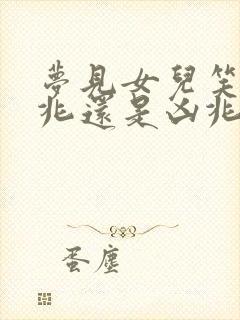 夢見女兒笑
兆還是凶兆
蛋塵